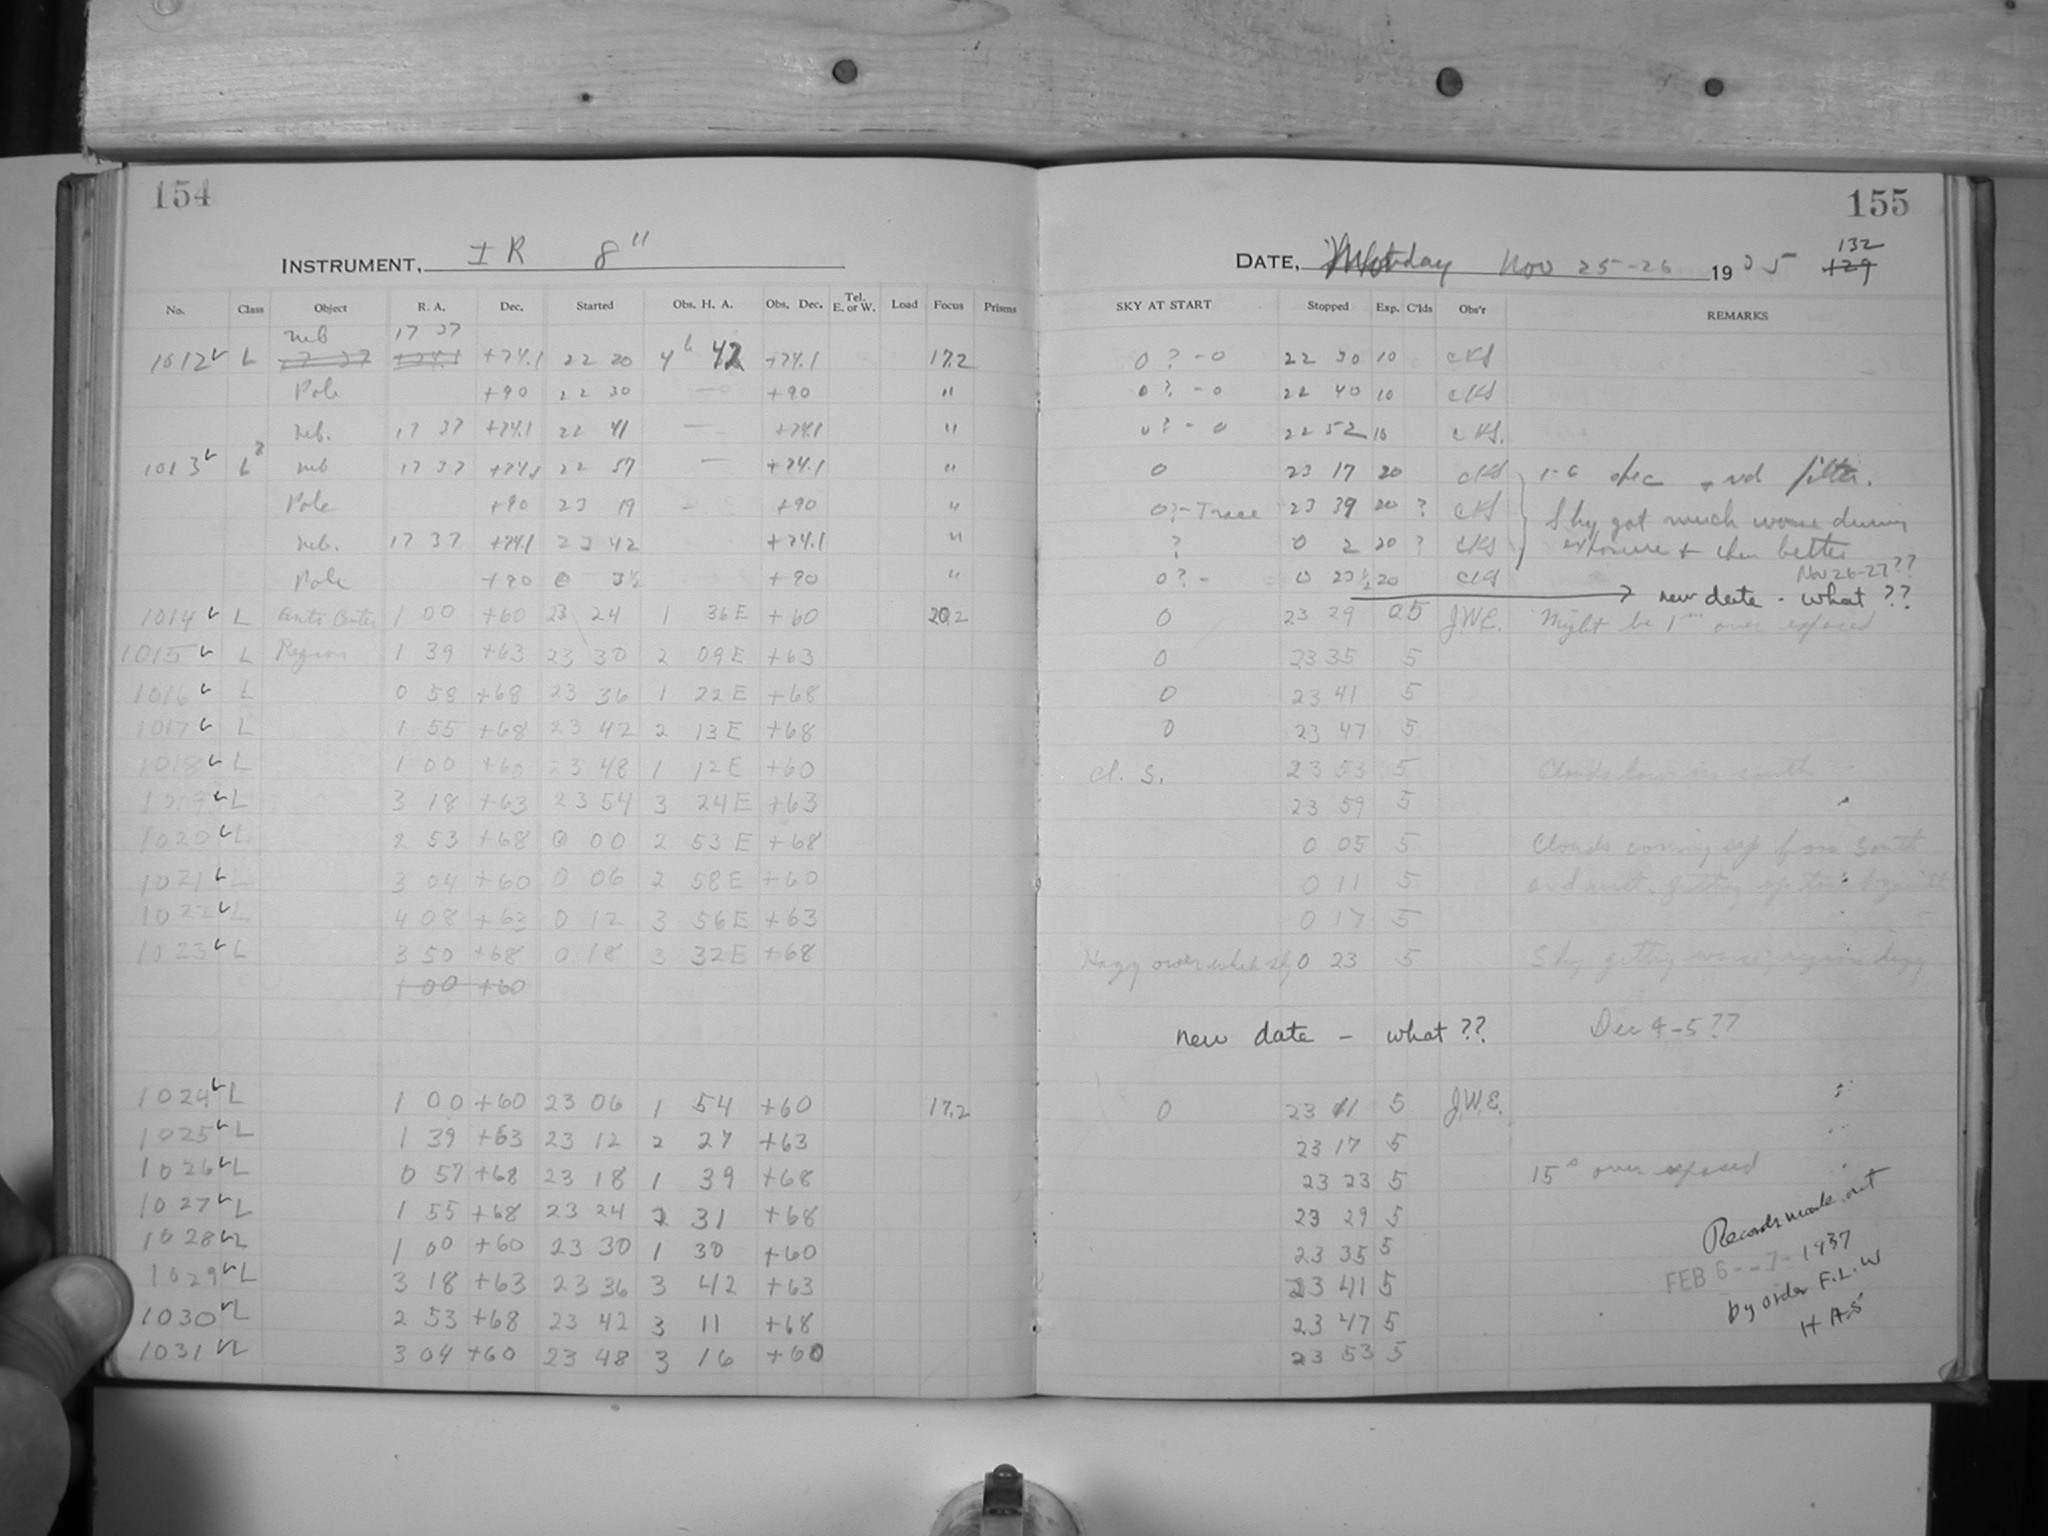 154
INSTRUMENT, I R 8"
No. Class Object R. A. Dec. Started Obs. H. A. Obs. Dec. Tel. E. or W. Load Focus Prisms
neb 17 37
1012 L 17 37 +74.1 +74.1 22 20 4h 42 +74.1 17.2
Pole +90 22 30 — +90 "
neb. 17 37 +74.1 22 41 — +74.1 "
1013 L neb 17 37 +74.1 22 57 — +74.1 "
Pole +90 23 19 - +90 "
neb. 17 37 +74.1 23 42 +74.1 "
Pole +90 0 3½ +90 "
1014 L Anti Center 1 00 +60 23 24 1 36E +60 20.2
1015 L Region 1 39 +63 23 30 2 09E +63
1016 L 0 58 +68 23 36 1 22E +68
1017 L 1 55 +68 23 42 2 13E +68
1018 L 1 00 +60 23 48 1 12E +60
1019 L 3 18 +63 23 54 3 24E +63
1020 L 2 53 +68 0 00 2 53E +68
1021 L 3 04 +60 0 06 2 58E +60
1022 L 4 08 +63 0 12 3 56E +63
1023 L 3 50 +68 0 18 3 32E +68
1 00 +60
1024 L 1 00 +60 23 06 1 54 +60 17.2
1025 L 1 39 +63 23 12 2 27 +63
1026 L 0 57 +68 23 18 1 39 +68
1027 L 1 55 +68 23 24 2 31 +68
1028 L 1 00 +60 23 30 1 30 +60
1029 L 3 18 +63 23 36 3 42 +63
1030 L 2 53 +68 23 42 3 11 +68
1031 L 3 04 +60 23 48 3 16 +60
155
132
DATE, Monday Nov 25-26 1935 129
SKY AT START Stopped Exp. C'lds Obs'r REMARKS
0 ? - 0 22 30 10 CKS
0 ? - 0 22 40 10 CKS
0 ? - 0 22 52 10 CKS.
0 23 17 20 CKS dec + red filter.
0?-Trace 23 39 20 ? CKS Sky got much worse during
? 0 2 20 ? CKS exposure + then better
Nov 26-27??
0? - 0 23½ 20 CKS
new date - what ??
0 23 29 05 J.W.E. Might be 1m over exposed
0 23 35 5
0 23 41 5
0 23 47 5
Cl. S. 23 53 5 Clouds low in south
23 59 5
0 05 5 Clouds coming up from South
0 11 5 and west. getting up to
0 17 5
Hazy over whole sky 0 23 5 Sky getting worse;
new date - what ?? Dec 4-5??
0 23 11 5 J.W.E.
23 17 5
23 23 5 15s over exposed
23 29 5
23 35 5
23 41 5
23 47 5
23 53 5
Records made out
FEB 6--7-1937
by order F.L.W
H A S